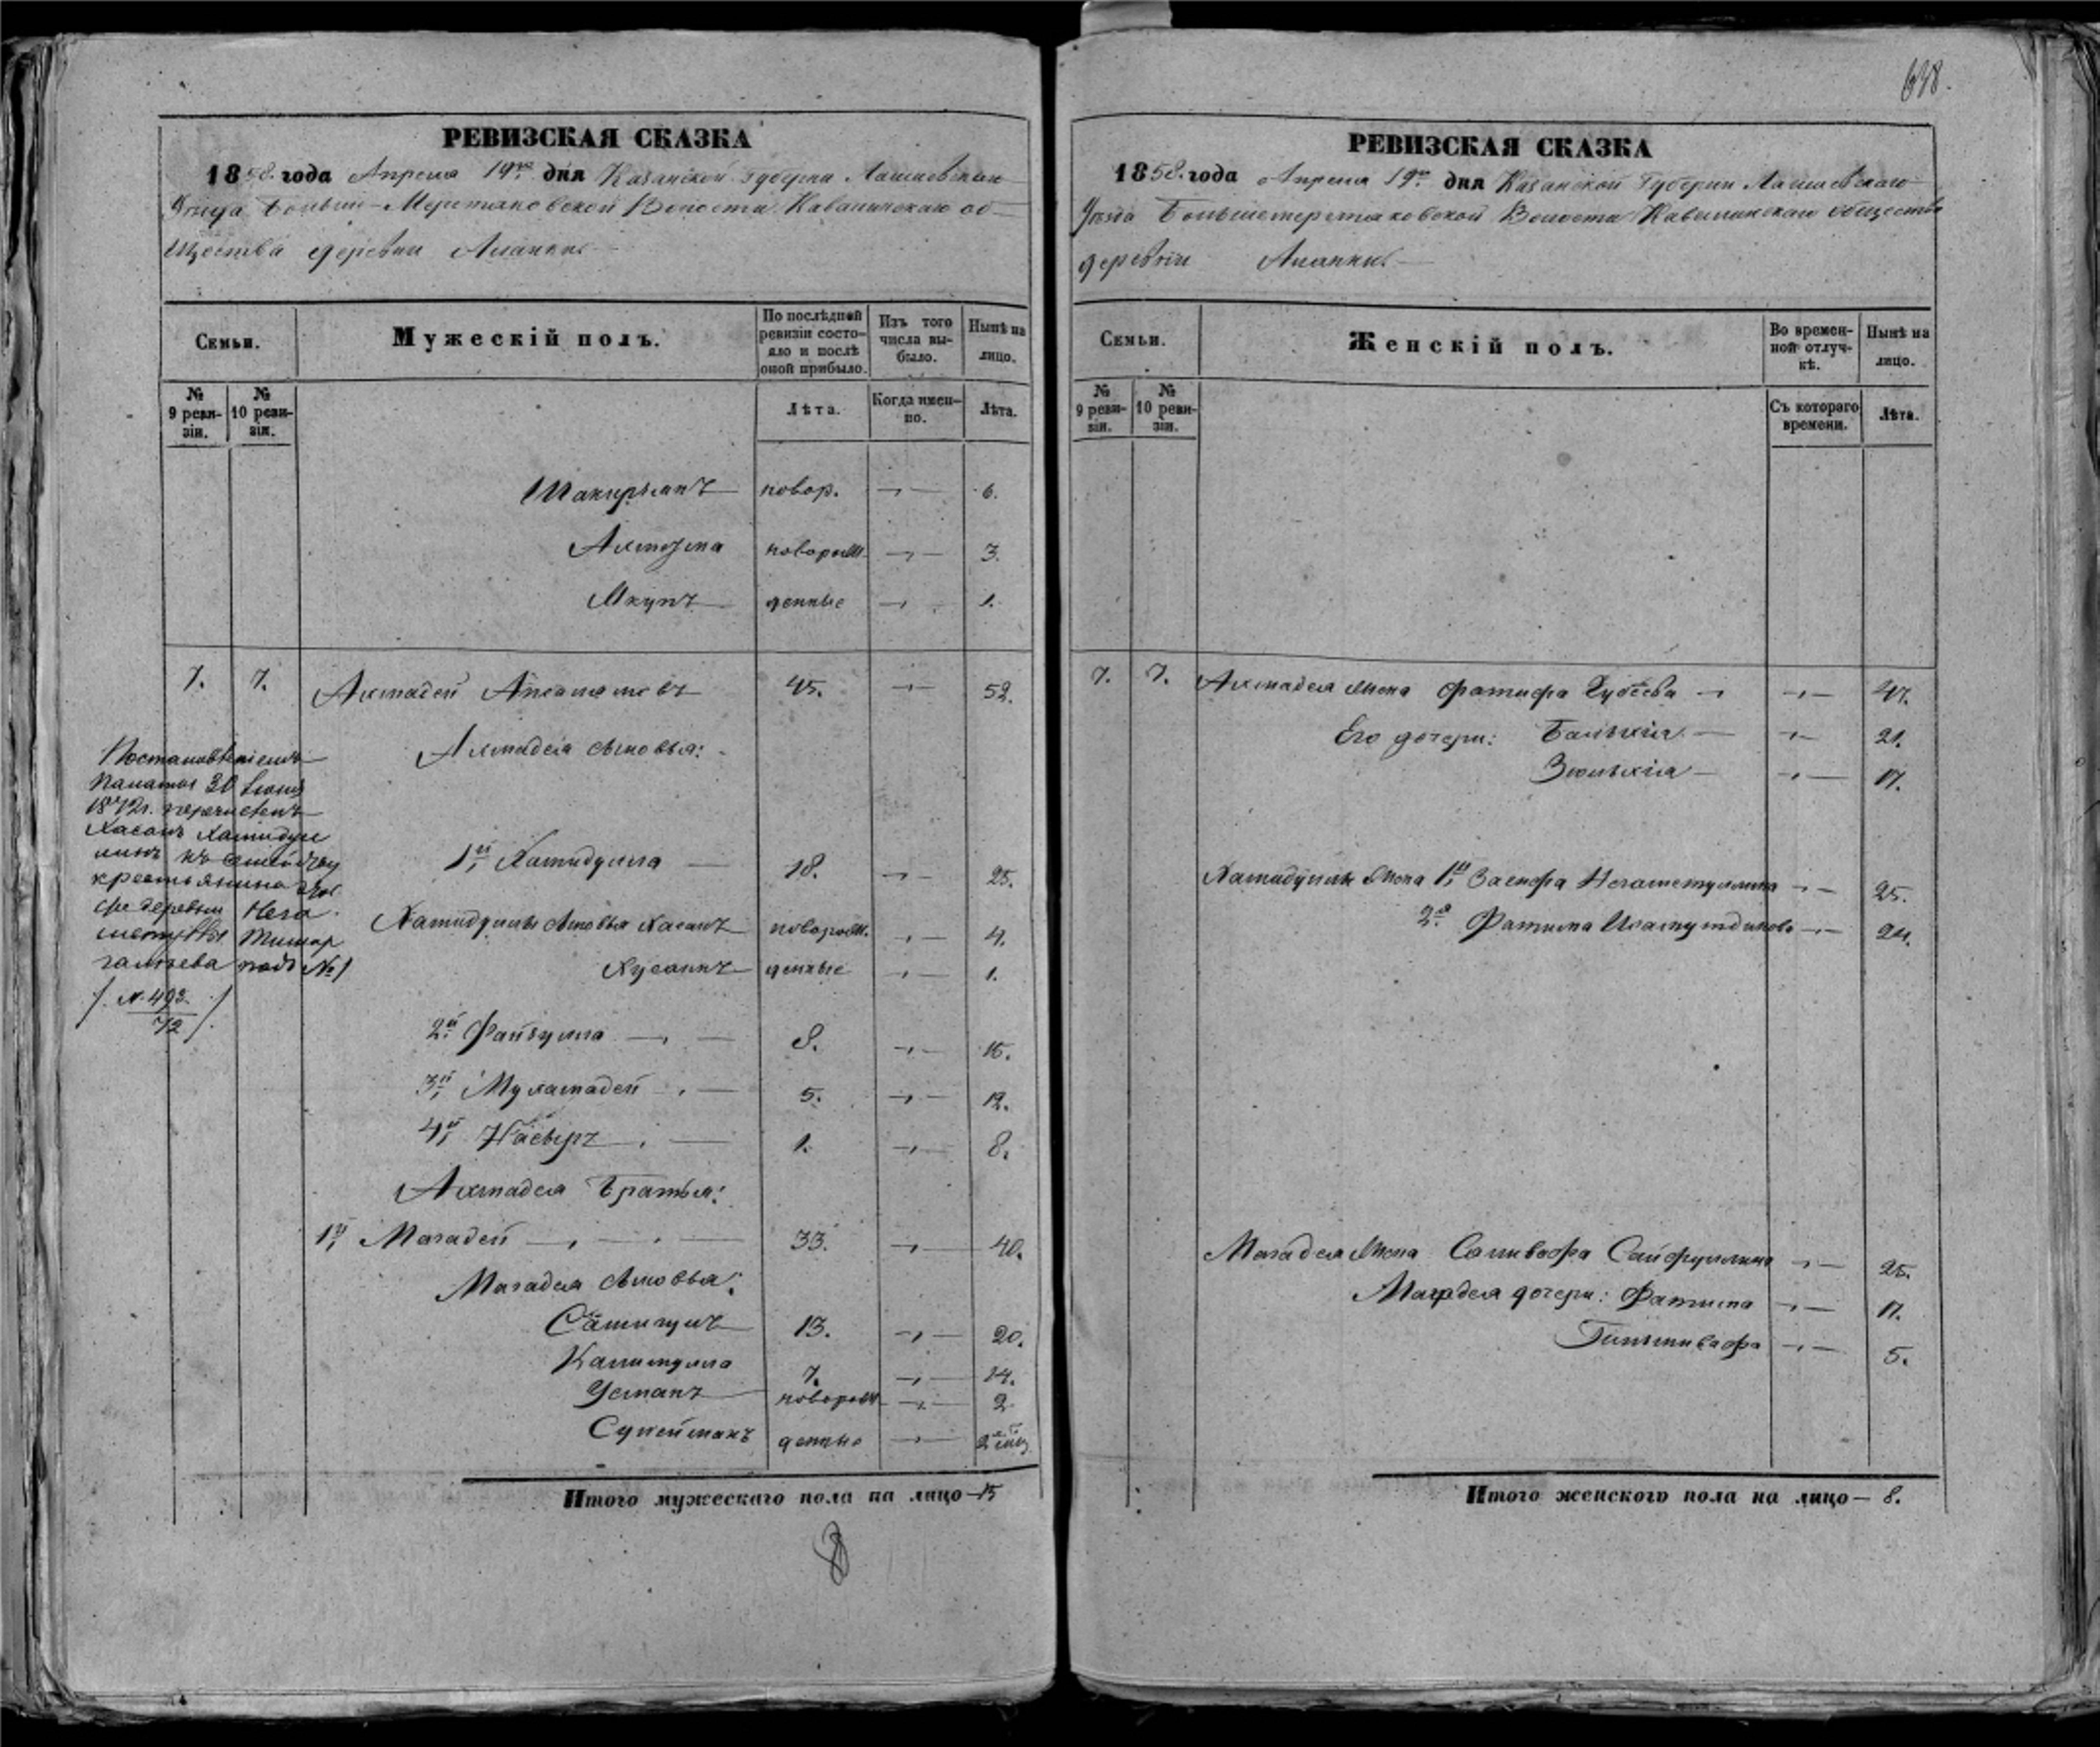 638.
РЕВИЗСКАЯ СКАЗКА
1858. года Апреля 19го дня Казанской Губерни Лаишевскаго
Уезда Больше-Меретяковской Волости Кавалинскаго об-
щества деревни Аланки
Семьи.
Мужескій полъ.
По послѣдней ревизіи состо-яло и послѣ оной прибыло.
Изъ того числа вы-было.
Нынѣ на лицо.
№ 9 реви-зіи.
№ 10 реви-зіи.
Лѣта.
Когда имен-но.
Лѣта.
Шакирзянъ новор. 6.
Ахметша новорож. 3.
Якупъ денные 1.
7. 7. Ахмадей Апсалямовъ 45. 52.
Ахмадея сыновья:
1й Хамидулла 18. 25.
Хамидуллы сыновья Хасанъ новорож. 4.
Хусаинъ денные 1.
2й Файзулла 8. 15.
3й Мухамадей 5. 12.
4й Насыръ 1. 8.
Ахмадея братья:
1й Магадей 33. 40.
Магадея сыновья:
Самигулъ 13. 20.
Калимулла 7. 14.
Усманъ новорож 2
Сулейманъ денные 2 мѣц
Итого мужескаго пола на лицо—15
8
Постановленіемъ
Палаты 30 Іюня
1872г. перечисленъ
Хасанъ Хамидул
линъ къ семейству
крестьянина
деревни Нега
галеева подъ №1
/. №. 493. ./
72
РЕВИЗСКАЯ СКАЗКА
1858. года Апреля 19го дня Казанской Губерни Лаишевскаго
Уѣзда Большемеретяковской Волости Кавалинскаго общества
деревни Аланки
Семьи.
Женскій полъ.
Во времен-ной отлуч-кѣ.
Нынѣ на лицо.
№ 9 реви-зіи.
№ 10 реви-зіи.
Съ котораго времени.
Лѣта.
7. 7. Ахмадея жена Фатифа Губеева 47.
Его дочери: Бальхія 21.
Зюльхія 17.
Хамидуллы жена 1я Загифа Негаметуллина 25.
2я Фатима Исамутдинова 24.
Магадея жена Саливафа Сайфуллина 25.
Магадея дочери: Фатима 11.
Гильмивафа 5.
Итого женскаго пола на лицо— 8.